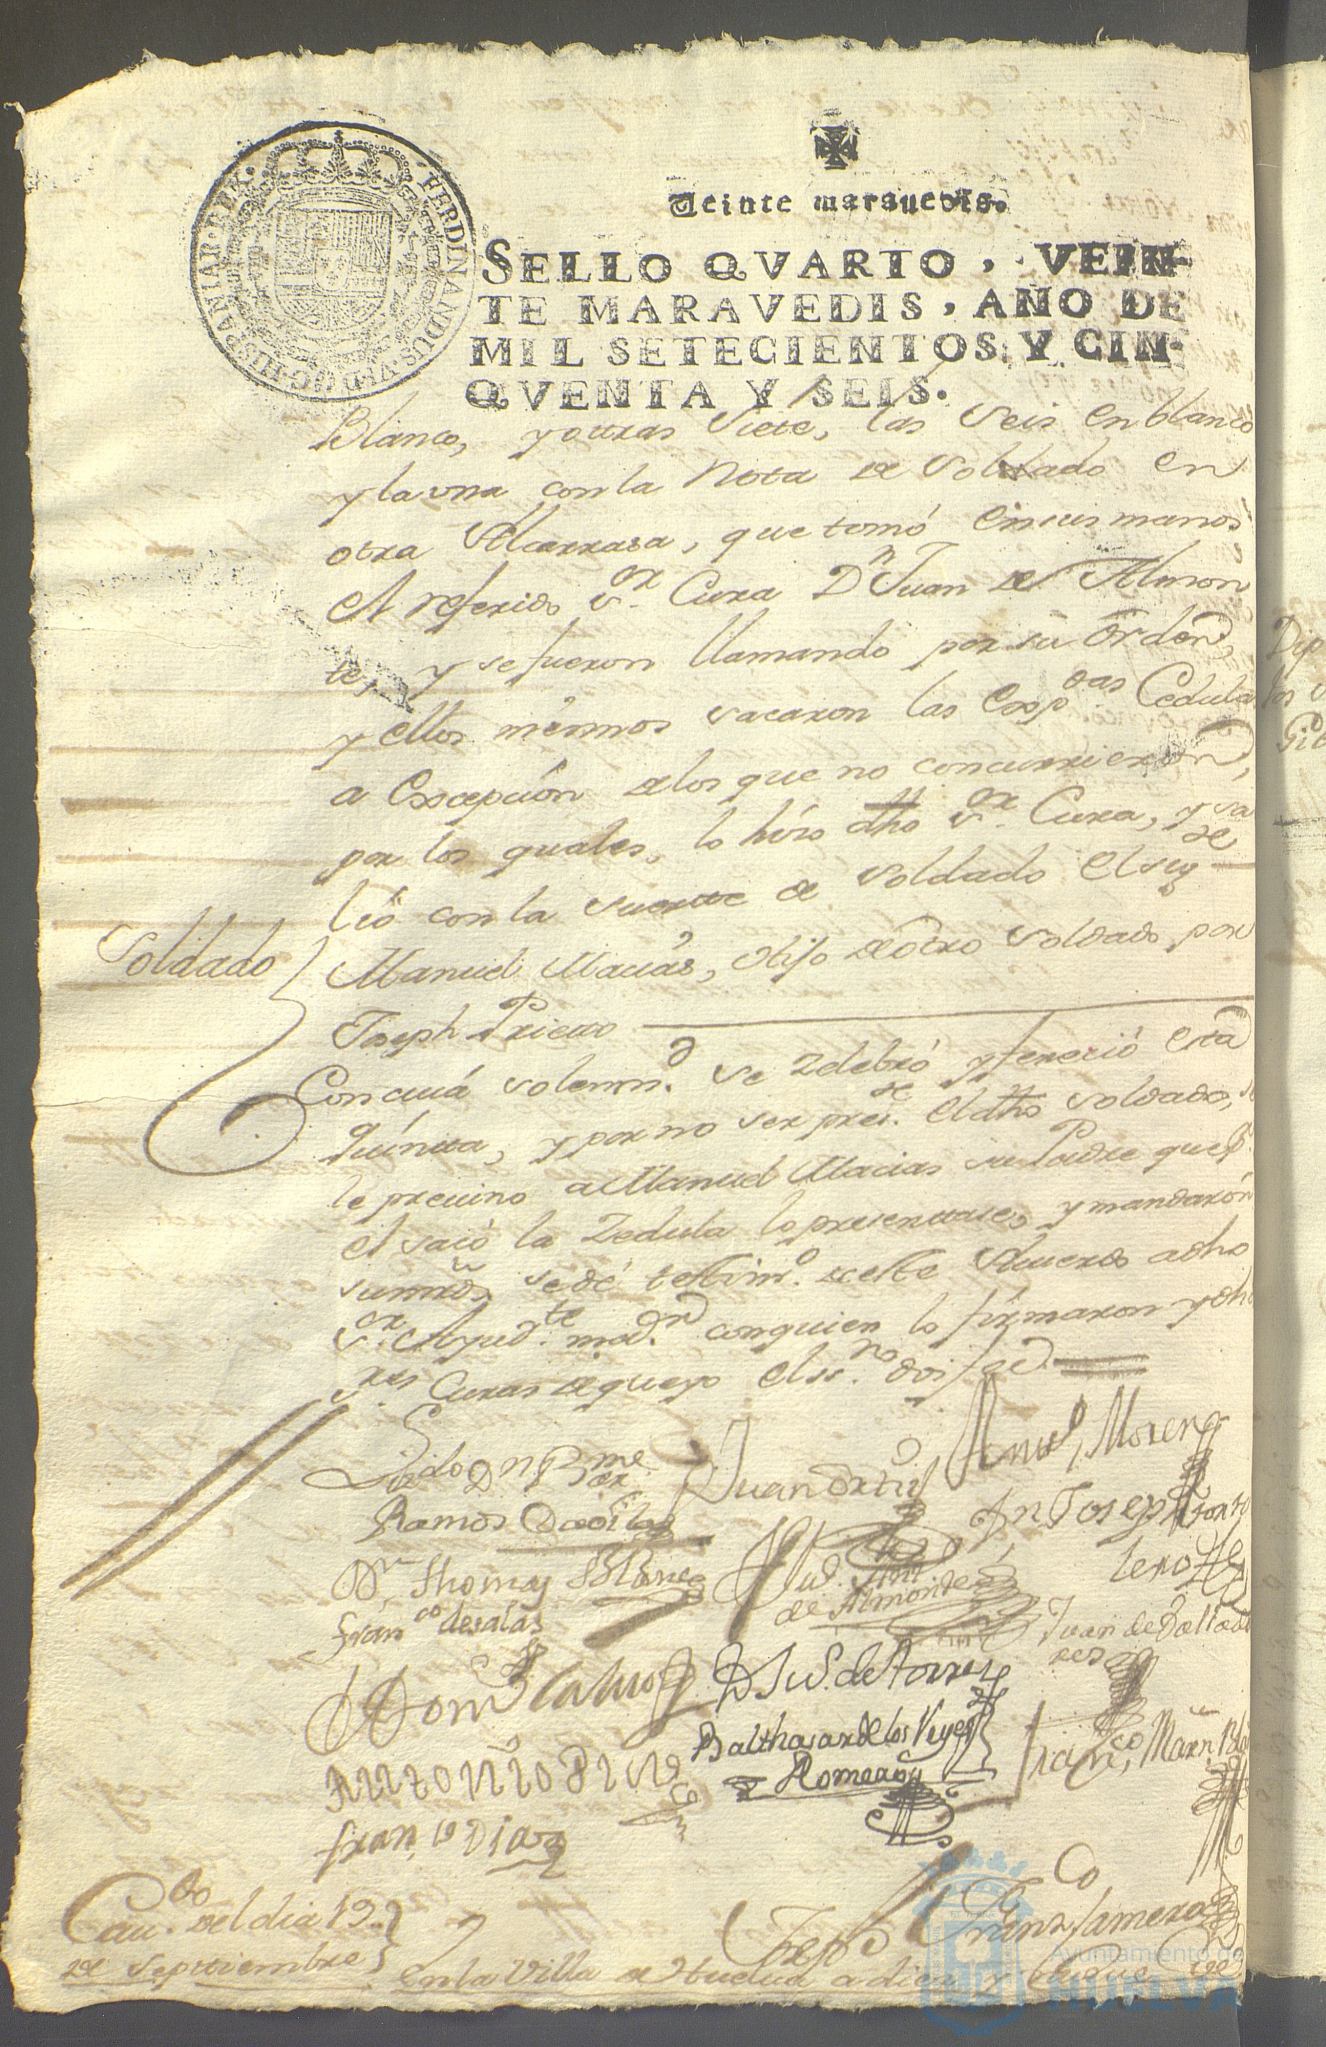 FERDINANDUS VI D G HISPANIAR REX
Veinte maravedis.
SELLO QVARTO, VEIN-
TE MARAVEDIS, AÑO DE
MIL SETECIENTOS, Y CIN-
QVENTA Y SEIS.
Blanco, y otras siete, las seis en blanco
y la vna con la Nota de Soldado en
otra Alcarrasa, que tomó en sus manos
el referido Sor. Cura Dn Juan de Almon
te, y se fueron llamando por su orden,
y ellos mismos sacaron las Corspdas Cedula
a Excepción de los que no concurrieron,
por los quales, lo hizo dho Sor. Cura, y sa
lió con la suerte de Soldado el sigte
Soldado
Manuel Macias, hijo de otro soldado por
Joseph Prieto
Con cuia solemnd. se zelebró y feneció esta
Quinta, y por no ser preste. el dho soldado, se
le previno a Manuel Macias su Padre que pr.
el sacó la Zedula lo presentase, y mandarón
sus mrds, se dé testimo. de este Acuerdo a dho
Sor. Ayudte. mor. con quien lo firmaron y dhos
Sres Curas de que yo el ssno. doi fee
Lizdo Dn Bme
Ramos Davila
Juan Ortiz
Anto, Moreno
Dn Joseph
Dr. Thomas Blanco
Juo.
de Almonte
Franco de salas
Juan de
Domo Calvo
D Ju. de Torres
Balthasar de los Reyes
Romero
Franco, Marn.
Antonio
Franco Diaz
Cavdo. del dia 19
de Septiembre
En la Villa de Huelva a diez y nueve de
Ayuntamiento de
HUELVA